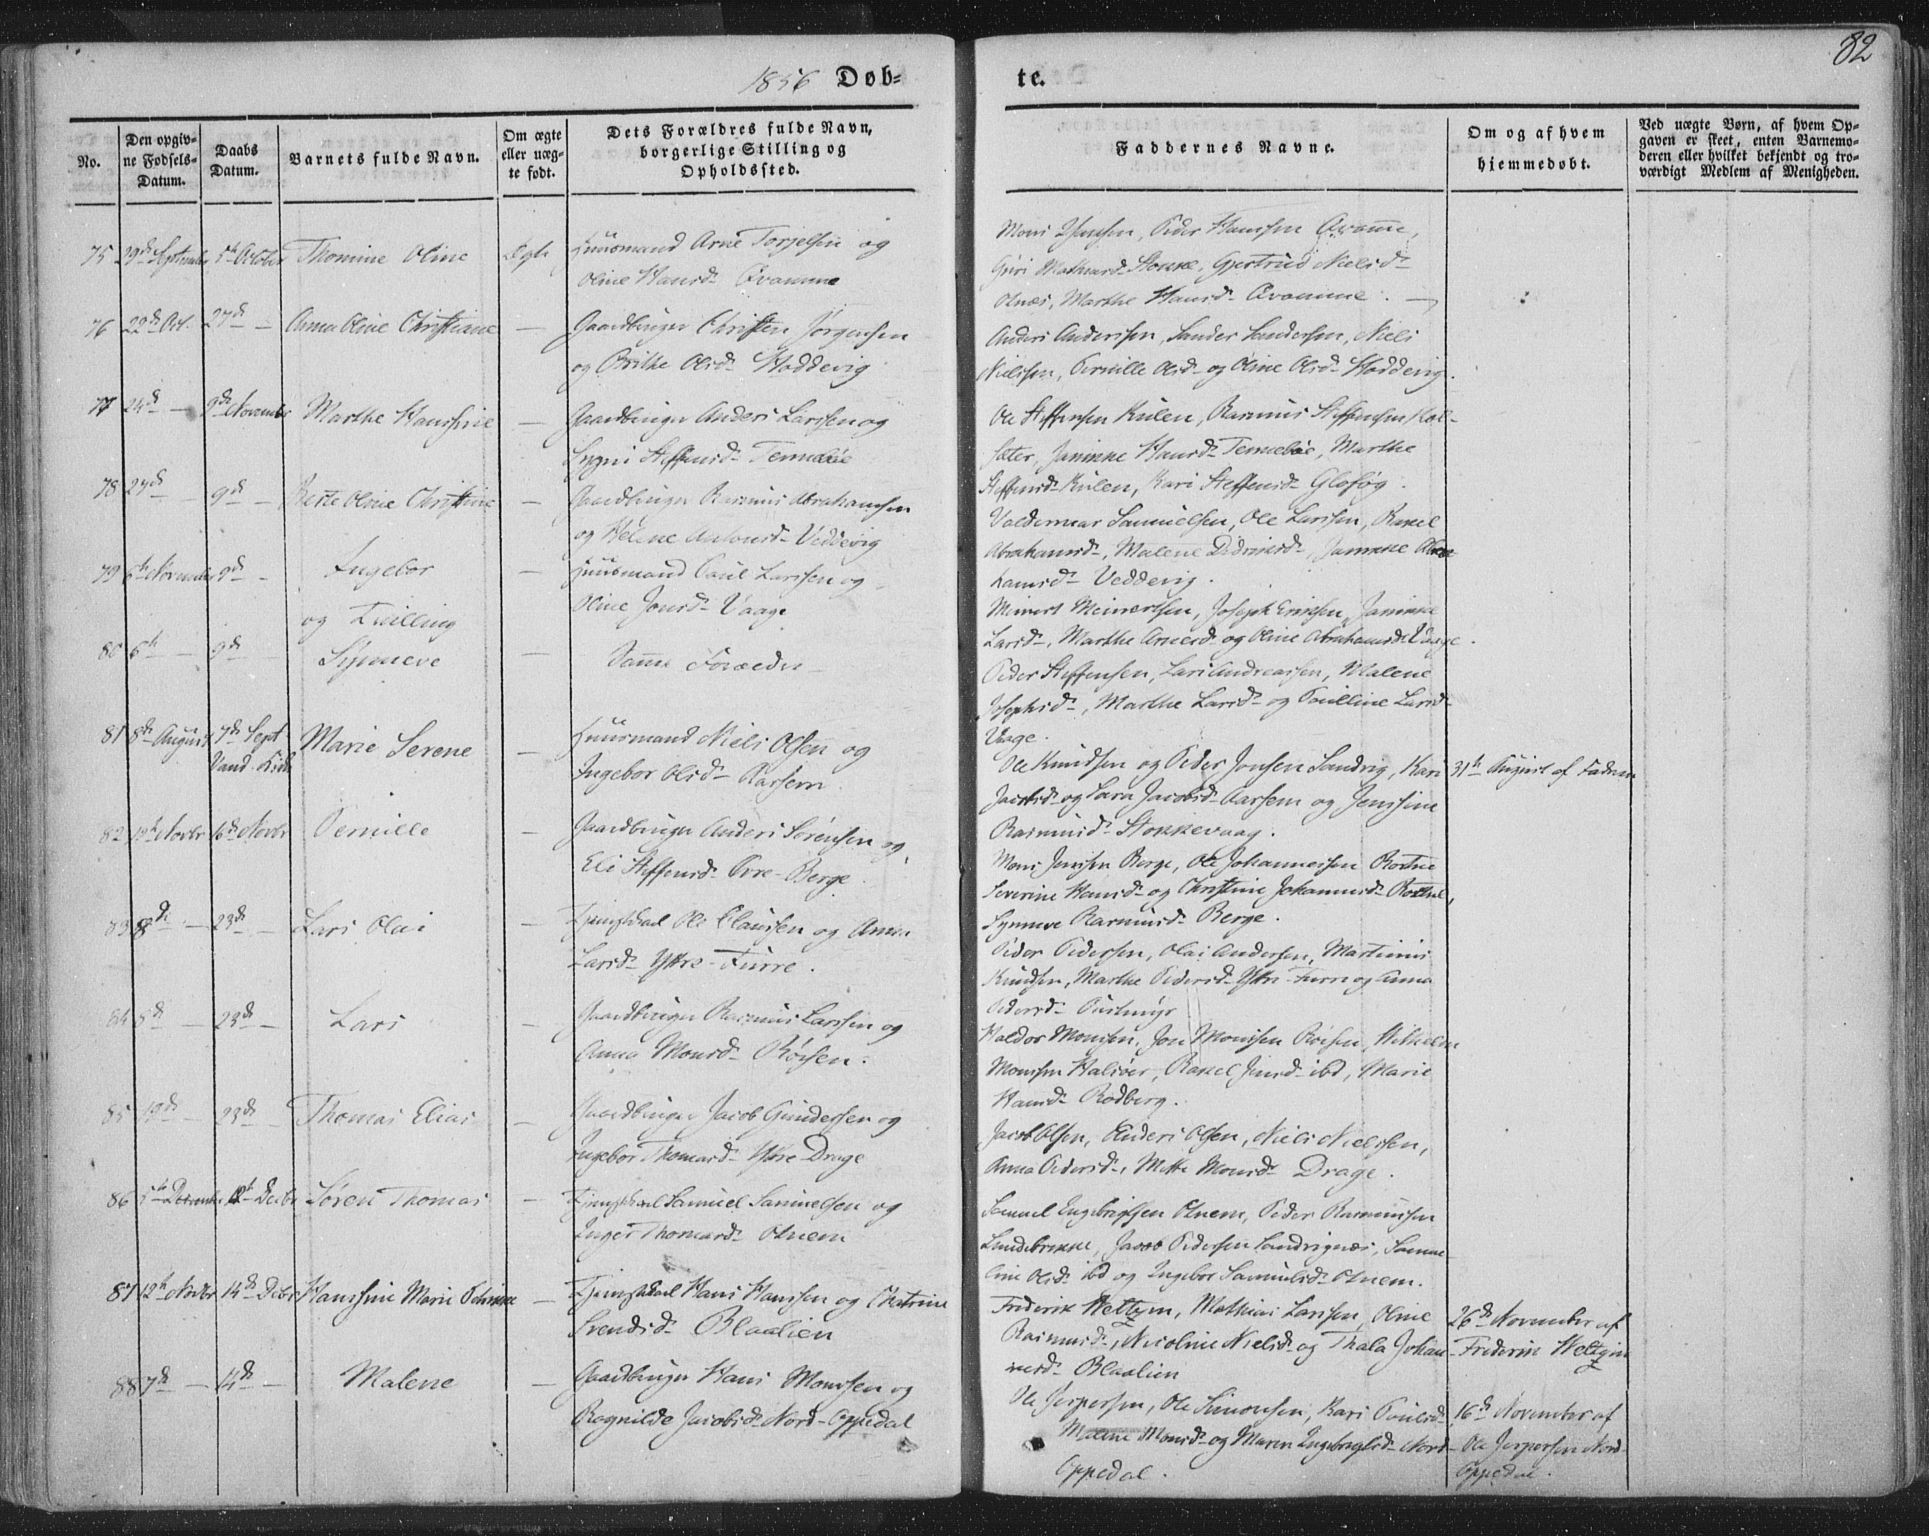 82
1856 Døb=
te.
No.
Den opgiv=
ne Fødsels=
Datum.
Daabs
Datum.
Barnets fulde Navn.
Om ægte
eller uæg=
te født.
Dets Forældres fulde Navn,
borgerlige Stilling og
Opholdssted.
Faddernes Navne.
Om og af hvem
hjemmedøbt.
Ved uægte Børn, af hvem Op=
gaven er skeet, enten Barnemo=
deren eller hvilket bekjendt og tro=
værdigt Medlem af Menigheden.
75 29de September 5te October Thomine Oline Ægte Huusmand Arne Torjelsen og
Oline Hansd. Qvamme
Mons Hansen, Peder Hanssen Qvamme,
Guri Mathiasd. Stokke, Gjertrud Nielsd.
Olnæs, Marthe Hansd. Qvamme.
76 22de Oct. 27de — Anna Oline Christiane — Gaardbruger Christen Jørgensen
og Brithe Olsd. Hoddevig
Anders Andersen, Sander Sandersen, Niels
Nielssen, Pernille Olsd. og Oline Olsd. Hoddevig.
77 24de — 9de November Marthe Hanssine — Gaardbruger Anders Larssen og
Synni Steffensd. Tennebøe
Ole Steffensen Kulen, Rasmus Steffensen Hol-
sæter, Janikke Hansd. Tennebøe, Marthe
Steffensd. Kulen, Kari Steffensd. Glosøg.
78 27de — 9de — Berte Oline Christine — Gaardbruger Rasmus Abrahamsen
og Helene Antonsd. Vedvig
Valdemar Samuelsen, Ole Larssen, Rakel
Abrahamsd., Malene Didriksd., Janikke Abra-
hamsd. Veddevig.
79 6te November 9de — Ingebor — Huusmand Paul Larssen og
Oline Jonsd. Vaage
og Tvilling
Meinert Meinertsen, Joseph Erikssen, Janikke
Larsd., Marthe Arnesd. og Oline Abrahamsd. Vaage.
80 6te — 9de Synneve — Samme Forældre
Peder Steffensen, Lars Andreassen, Malene
Josephsd., Marthe Larsd. og Paulline Larsd.
Vaage.
81 8de August 7de Sept. Marie Serene — Huusmand Niels Olsen og
Ingebor Olsd. Aarsem.
Ole Knudsen og Peder Jonsen Sandvig, Kari
Jacobsd. og Sara Jacobsd. Aarsem og Jenssine
Rasmusd. Stokkevaag.
31te August af Faderen
82 12te Novbr 16de Novbr Pernille — Gaardbruger Anders Sørensen og
Eli Steffensd. Øvre-Berge
Mons Jenssen Berge, Ole Johannessen Rotne
Severine Hansd. og Christine Johannesd. Rotne,
Synneve Rasmusd. Berge.
83 8de — 23de — Lars Olai — Tjenestkarl Ole Clausen og Anna
Larsd. Ytre-Furre.
Peder Pedersen, Olai Andersen, Martinus
Knudsen, Marthe Pedersd. Ytre-Furre og Anna
Pedersd.
84 8de — 23de — Lars — Gaardbruger Rasmus Larssen og
Anna Monsd. Røisen.
Haldor Monsen, Jon Monsen Røisen, Wilhelm
Monsen Halsør, Rakel Jensd. ibd, Marie
Hansd. Rødberg.
85 19de — 23de — Thomas Elias — Gaardbruger Jacob Gundersen og
Ingebor Thomasd. Ytre Drage
Jacob Olsen, Anders Olsen, Niels Nielssen,
Anna Pedersd., Mette Monsd. Drage.
86 5te December 12te Decbr Søren Thomas — Tjenestkarl Samuel Samuelsen og
Inger Thomasd. Otnem
Samuel Engebrigtsen Otnem, Peder Rasmussen
Lundebrekke, Jacob Pedersen Sandvignæs, Samue-
line Olsd. ibd og Ingebor Samuelsd. Otnem.
87 12te Novbr 14de Decbr Hanssine Marie Petrikke — Tjenestkarl Hans Hanssen og Chatrine
Svendsd. Blaalien
Frederik Weltzin, Mathias Larssen, Oline
Rasmusd., Nicoline Nielsd. og Thala Johan-
nesd. Blaalien
26de November af
Frederik Weltzin
88 7de — 14de — Malene — Gaardbruger Hans Monssen og
Ragnilde Jacobsd. Nord-Oppedal
Ole Jespersen, Ole Simonsen, Kari Paulsd.
Malene Monsd. og Maren Ingebrigtsd. Nord-
Oppedal.
16de November af
Ole Jespersen Nord-
Oppedal.